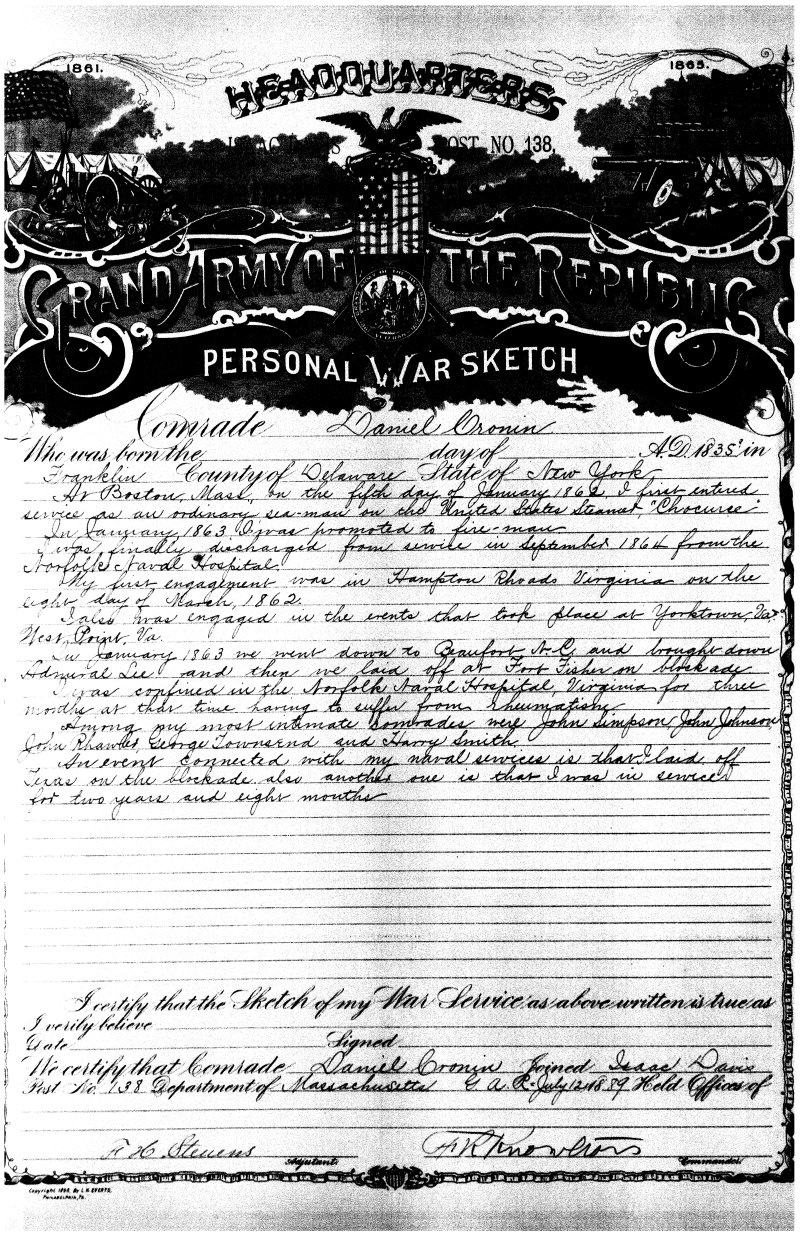 1861.
1865.
HEADQUARTERS
POST NO. 138,
GRAND ARMY OF THE REPUBLIC
PERSONAL WAR SKETCH
Comrade Daniel Cronin
Who was born the day of A.D. 1835 in
Franklin County of Delaware State of New York
At Boston, Mass, on the fifth day of January 1862, I first entered
service as an ordinary sea-man on the United States Steamer, "Chocurse"
In January 1863 I was promoted to fire-man
I was finally discharged from service in September 1864 from the
Norfolk Naval Hospital.
My first engagement was in Hampton Rhoads Virginia on the
eight day of March, 1862.
I also was engaged in the events that took place at Yorktown, Va.
West Point, Va.
In January 1863 we went down to Beaufort N.C. and brought down
Admiral Lee and then we laid off at Fort Fisher on blockade
I was confined in the Norfolk Naval Hospital, Virginia for three
months at that time having to suffer from rheumatism
Among my most intimate comrades were John Simpson, John Johnson
John George Townsend and Harry Smith.
An event connected with my naval services is that I laid off
Texas on the blockade also another one is that I was in service
for two years and eight months
I certify that the Sketch of my War Service as above written is true as
I verily believe
Date Signed
We certify that Comrade Daniel Cronin Joined Isaac Davis
Post No. 138 Department of Massachusetts G.A.R. July 12, 1889 Held Offices of
F. H. Stevens F R Knowlton
Adjutant Commander
Copyright 1890, By L.H. EVERTS,
PHILADELPHIA, PA.